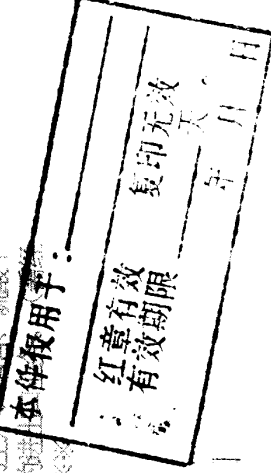 本件仅用于：
红章有效 复印无效
有效期限 天。
年 月 日